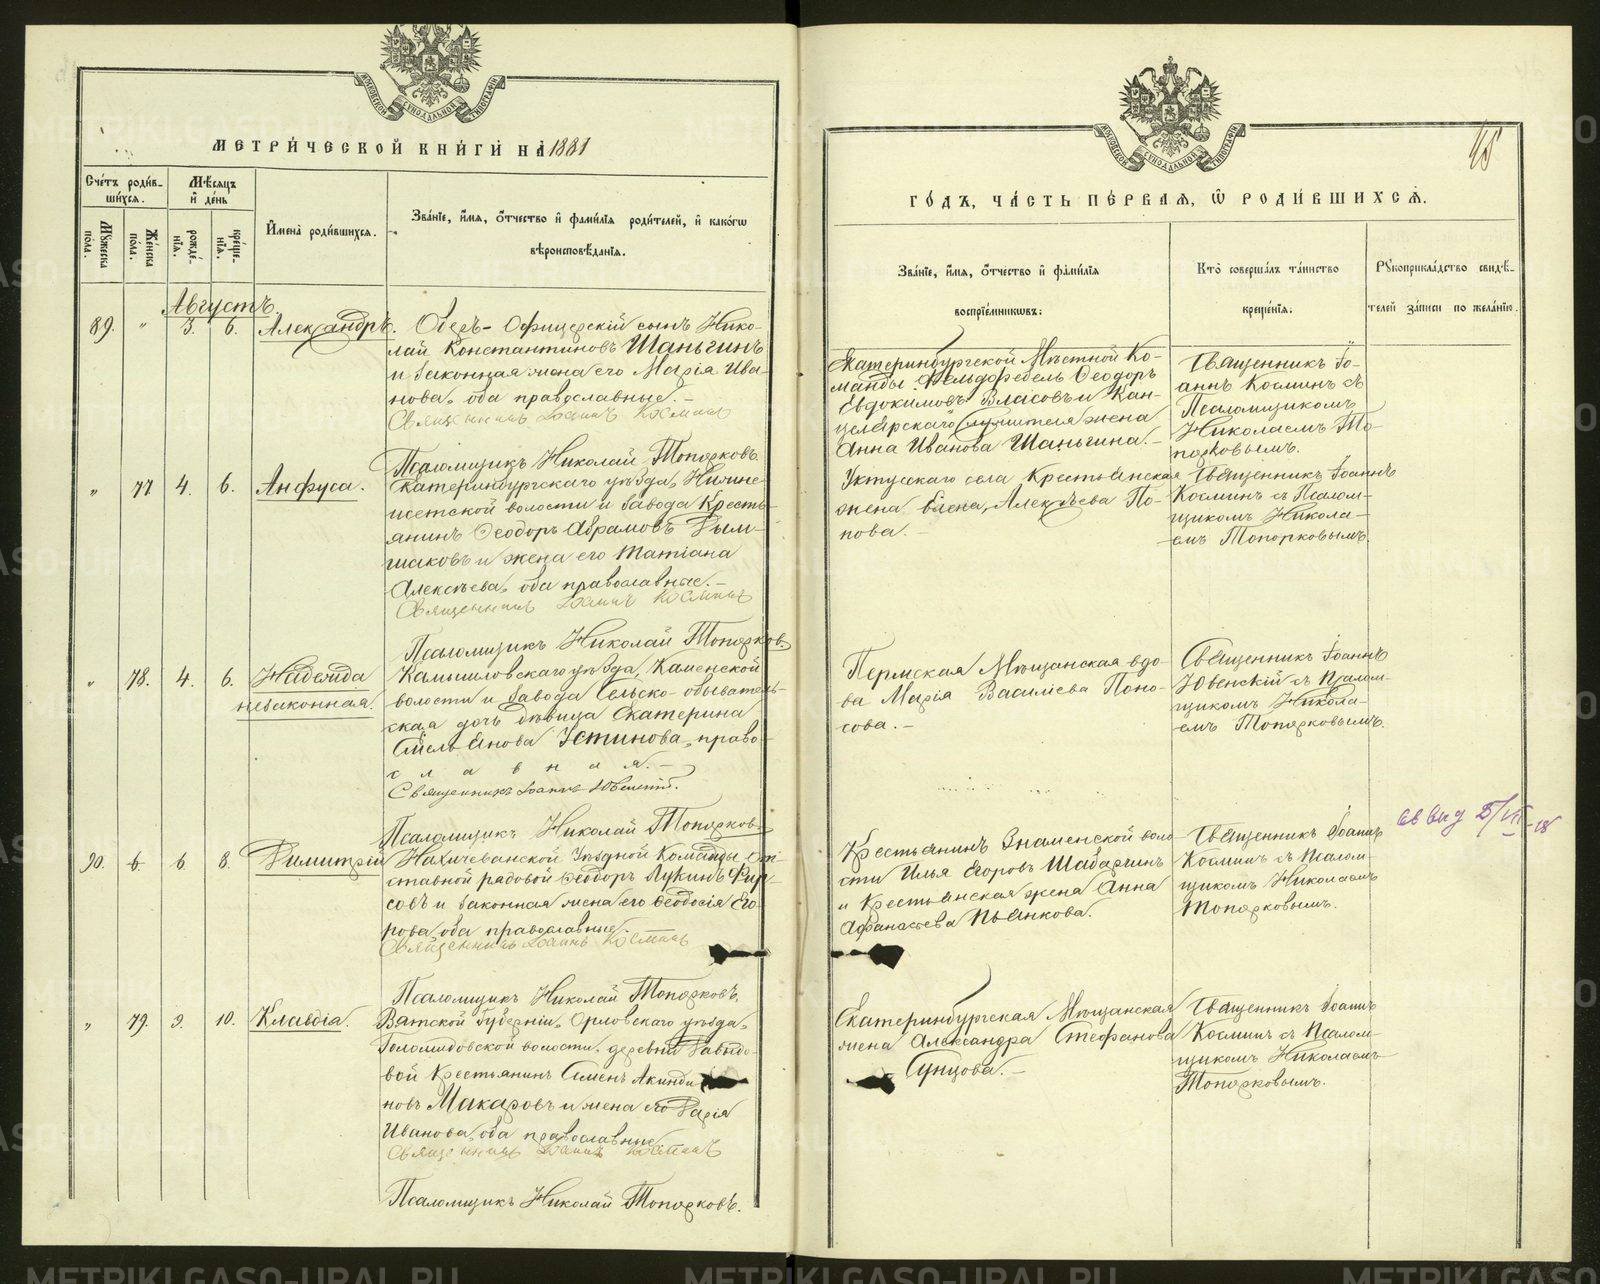 МЕТРИ́ЧЕСКОЙ КНИ́ГИ НА̀ 1881
Сче́тъ роди́в-
шихсѧ.
Мѣ́сѧцъ
и҆ де́нь
Мꙋ́жеска
по́ла.
Же́нска
по́ла.
рожде́-
нїѧ.
креще́-
нїѧ.
И҆мена̀ роди́вшихсѧ.
Зва́нїе, и҆́мѧ, ѻ҆́тчество и҆ фамѝлїѧ роди́телей, и҆ како́гѡ
вѣроисповѣ́данїѧ.
Августъ.
89. " 3. 6. Александръ.
Оберъ-Офицерскій сынъ Нико-
лай Константиновъ Шаньгинъ
и законная жена его Марія Ива-
нова, оба православные.-
Священникъ Іоаннъ Косминъ
Псаломщикъ Николай Топорковъ
" 77 4. 6. Анфуса.
Екатеринбургскаго уѣзда, Нижне-
исетской волости и завода Кресть-
янинъ Ѳеодоръ Абрамовъ
и жена его Татіана
Алексѣева, оба православные.-
Священникъ Іоаннъ Косминъ
Псаломщикъ Николай Топорков.
" 78. 4. 6. Надежда
незаконная.
Камышловскаго уѣзда, Каменской
волости и завода Сельско-обыватель-
ская дочь дѣвица Екатерина
Емельянова Устинова, право-
славная.-
Священникъ Іоаннъ Ювенскій.
Псаломщикъ Николай Топорковъ
90. " 6 8. Димитрій
Нахичеванской Уѣздной Команды от-
ставной рядовой Ѳеодоръ Лукинъ Фир-
совъ и законная жена его Ѳеодосія Его-
рова, оба православные.
Священникъ Іоаннъ Косминъ
Псаломщикъ Николай Топорковъ.
" 79. 9. 10. Клавдія.
Вятской Губерніи, Орловскаго уѣзда,
волости, деревни Давыдо-
вой Крестьянинъ Семенъ Акинди-
новъ Макаровъ и жена его Дарія
Иванова, оба православные
Священникъ Іоаннъ Косминъ
Псаломщикъ Николай Топорковъ.
48
ГО́ДЪ, ЧА́СТЬ ПЕ́РВАѦ, Ѡ҆ РОДИ́ВШИХСѦ.
Зва́нїе, и҆́мѧ, ѻ҆́тчество и҆ фамѝлїѧ
воспрїе́мникѡвъ:
Кто̀ соверша́лъ та́инство
креще́нїѧ:
Рꙋкоприкла́дство свидѣ́-
телей за́писи по жела́нїю.
Екатеринбургской Мѣстной Ко-
манды Фельдфебель Ѳеодоръ
Евдокимовъ Власовъ и Кан-
целярскаго служителя жена
Анна Иванова Шаньгина.-
Священникъ Іо-
аннъ Косминъ съ
Псаломщикомъ
Николаемъ То-
порковымъ.
Уктусскаго села Крестьянская
жена Елена Алексѣева По-
пова.-
Священникъ Іоаннъ
Косминъ съ Псалом-
щикомъ Никола-
емъ Топорковымъ.
Пермская Мѣщанская вдо-
ва Марія Василіева Поно-
сова.-
Священникъ Іоаннъ
Ювенскій съ Псалом-
щикомъ Никола-
емъ Топорковымъ.
Крестьянинъ Знаменской воло-
сти Илья Егоровъ Шабарчинъ
и Крестьянская жена Анна
Афанасьева Пьянкова.
Священникъ Іоаннъ
Косминъ съ Псалом-
щикомъ Николаемъ
Топорковымъ.
Екатеринбургская Мѣщанская
жена Александра Стефанова
Сунцова.-
Священникъ Іоаннъ
Косминъ съ Псалом-
щикомъ Николаемъ
Топорковымъ.
METRIKI.GASO-URAL.RU